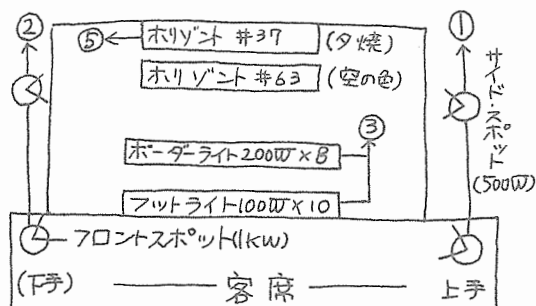 ② ⑤ ホリゾント #37 (夕焼) ①
ホリゾント #63 (空の色)
サイド・スポット
(500W)
③
ボーダーライト200W×8
フットライト100W×10
フロントスポット(1KW)
(下手) 客席 上手